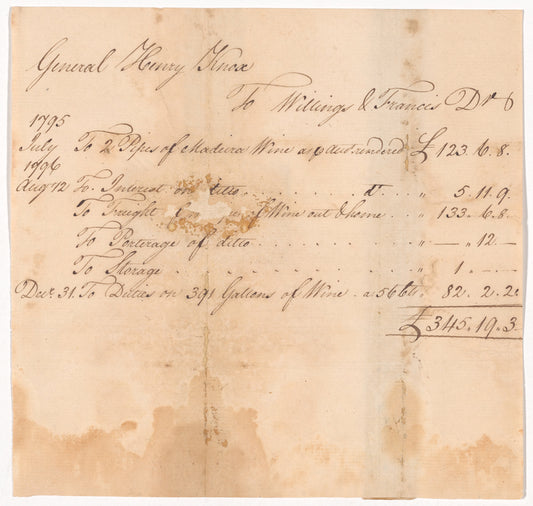 General Henry Knox
To Willings & Francis Dr
1795
July To 2 Pipes of Madeira Wine a Acct. rendered £ 123. 6. 8.
1796
Aug 12 To Interest on ditto " 5. 11. 9.
To Freight of Wine out & home " 133. 6. 8.
To Porterage of ditto " — " 12. —
To Storage " 1. — . —
Decr. 31. To Duties on 391 Gallons of Wine . a 56 Cts. 82. 2. 2
£ 345. 19. 3.